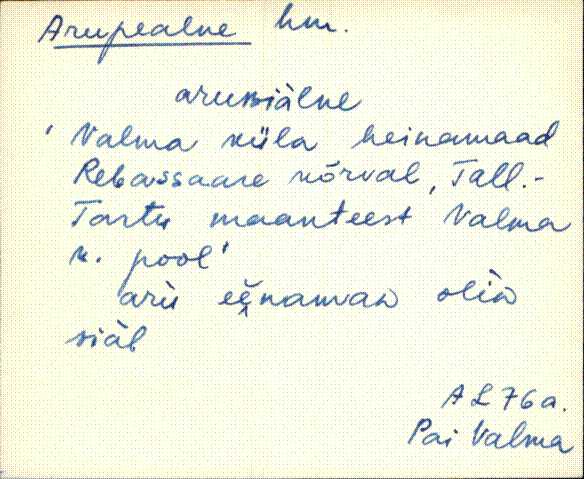 Arupealne hm.
arupiälne
'Valma küla heinamaad
Rebassaare kõrval, Tall.-
Tartu maanteest Valma
k. pool'
aru eenamaa oli
siäl
AL76a.
Pai Valma